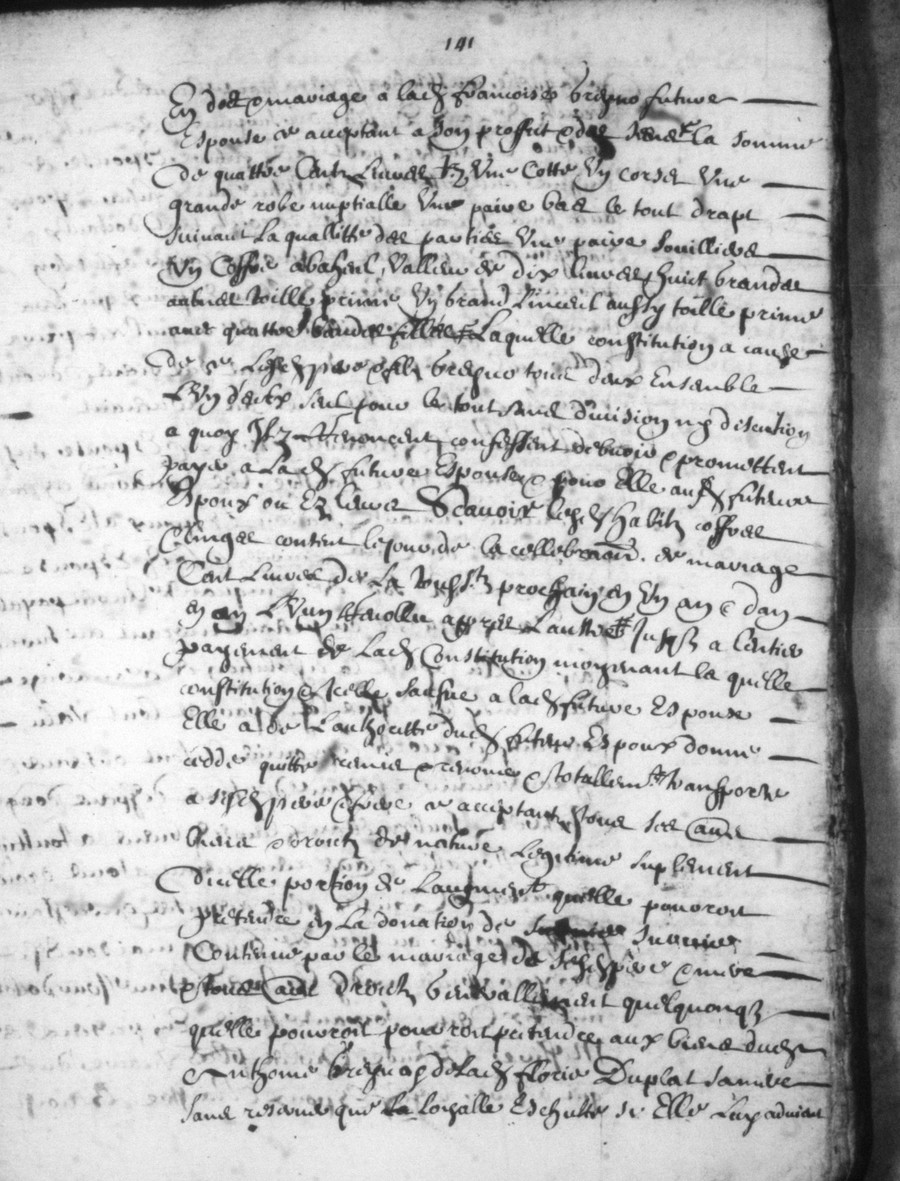 141
En dot & mariage a lad Francoise brugno future
Espouse ce acceptant a son proffit & des la somme
de quattre Centz Livres Tz Une Cotte Un corset Une
grande robe nuptialle Une paire bas le tout drapt
suivant la quallitte des parties Une paire soulliers
Un Coffre Vallieur de dix livres huict
toille prime Un brand Linceul aussy toille prime
avec quattre laquelle constitution a cause
de ce Lesd pere & filz brugno tous deux Ensemble
L'Un deulx seul pour le tout sans division ny discution
a quoy Ilz Renoncent confessent debvoir & promettent
payer a Lad future Espouse & pour Elle aud futeur
Espoux ou Ez leurs Scavoir lesd habitz coffre
& linges content le jour de la cellebration de mariage
Cent Livres de La Touss.tz prochain en Un an & dan
en an L'Un Revollu appres Lautre Jusqz a Lentier
payement de Lad Constitution moyenant la quelle
constitution & Icelle saufue a lad future Espouse
Elle a de Lauthoritte dud futeur Espoux donne
cedde quitte remis & renonce & totallem.t transporte
a sesd pere & frere ce acceptant tous ses autres
biens droitz de nature Legitime suplement
Dicelle portion de Laugment quelle pouroit
pretendre en La donation de survie
Contenue par le mariage de sesd pere & mere
& tous autres droitz quelquonqz
quelle pouvroit pouvroit pretendre aux biens dud
Anthoine brugno & de Lad florie Duplat sa mere
sans reserve que La Loyalle Escheutte si Elle Luy advient